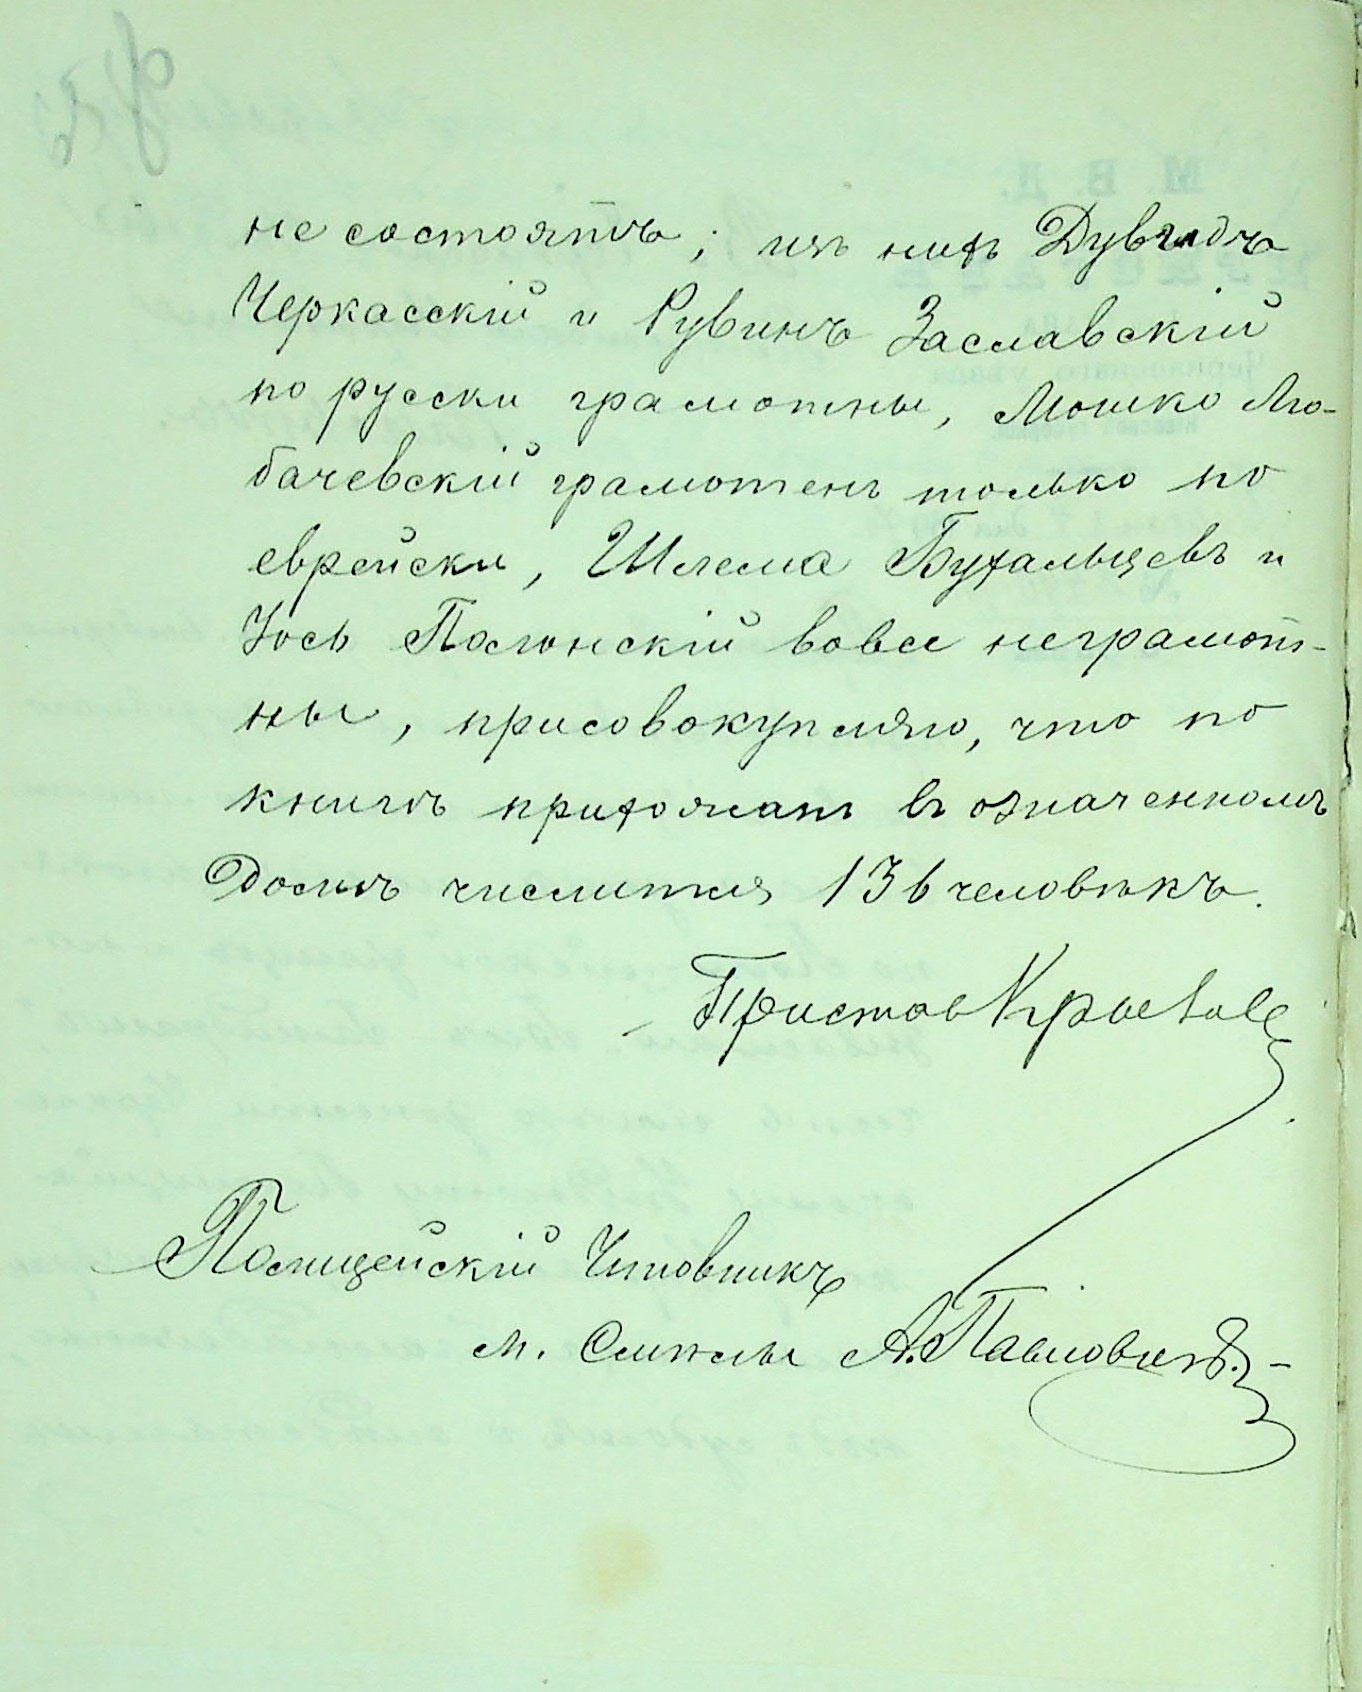 не состоятъ; изъ нихъ Дувидъ
Черкасскій и Рувинъ Заславскій
по русски грамотны, Мошко Лю-
бачевскій грамотенъ только по
еврейски, Шлема Бухальцевъ и
Іось Полонскій вовсе неграмот-
ны, присовокупляю, что по
книгѣ прихожанъ въ означенномъ
домѣ числится 136 человѣкъ.
Приставъ
Полицейскій Чиновникъ
м. Смѣлы А. Павловичъ.